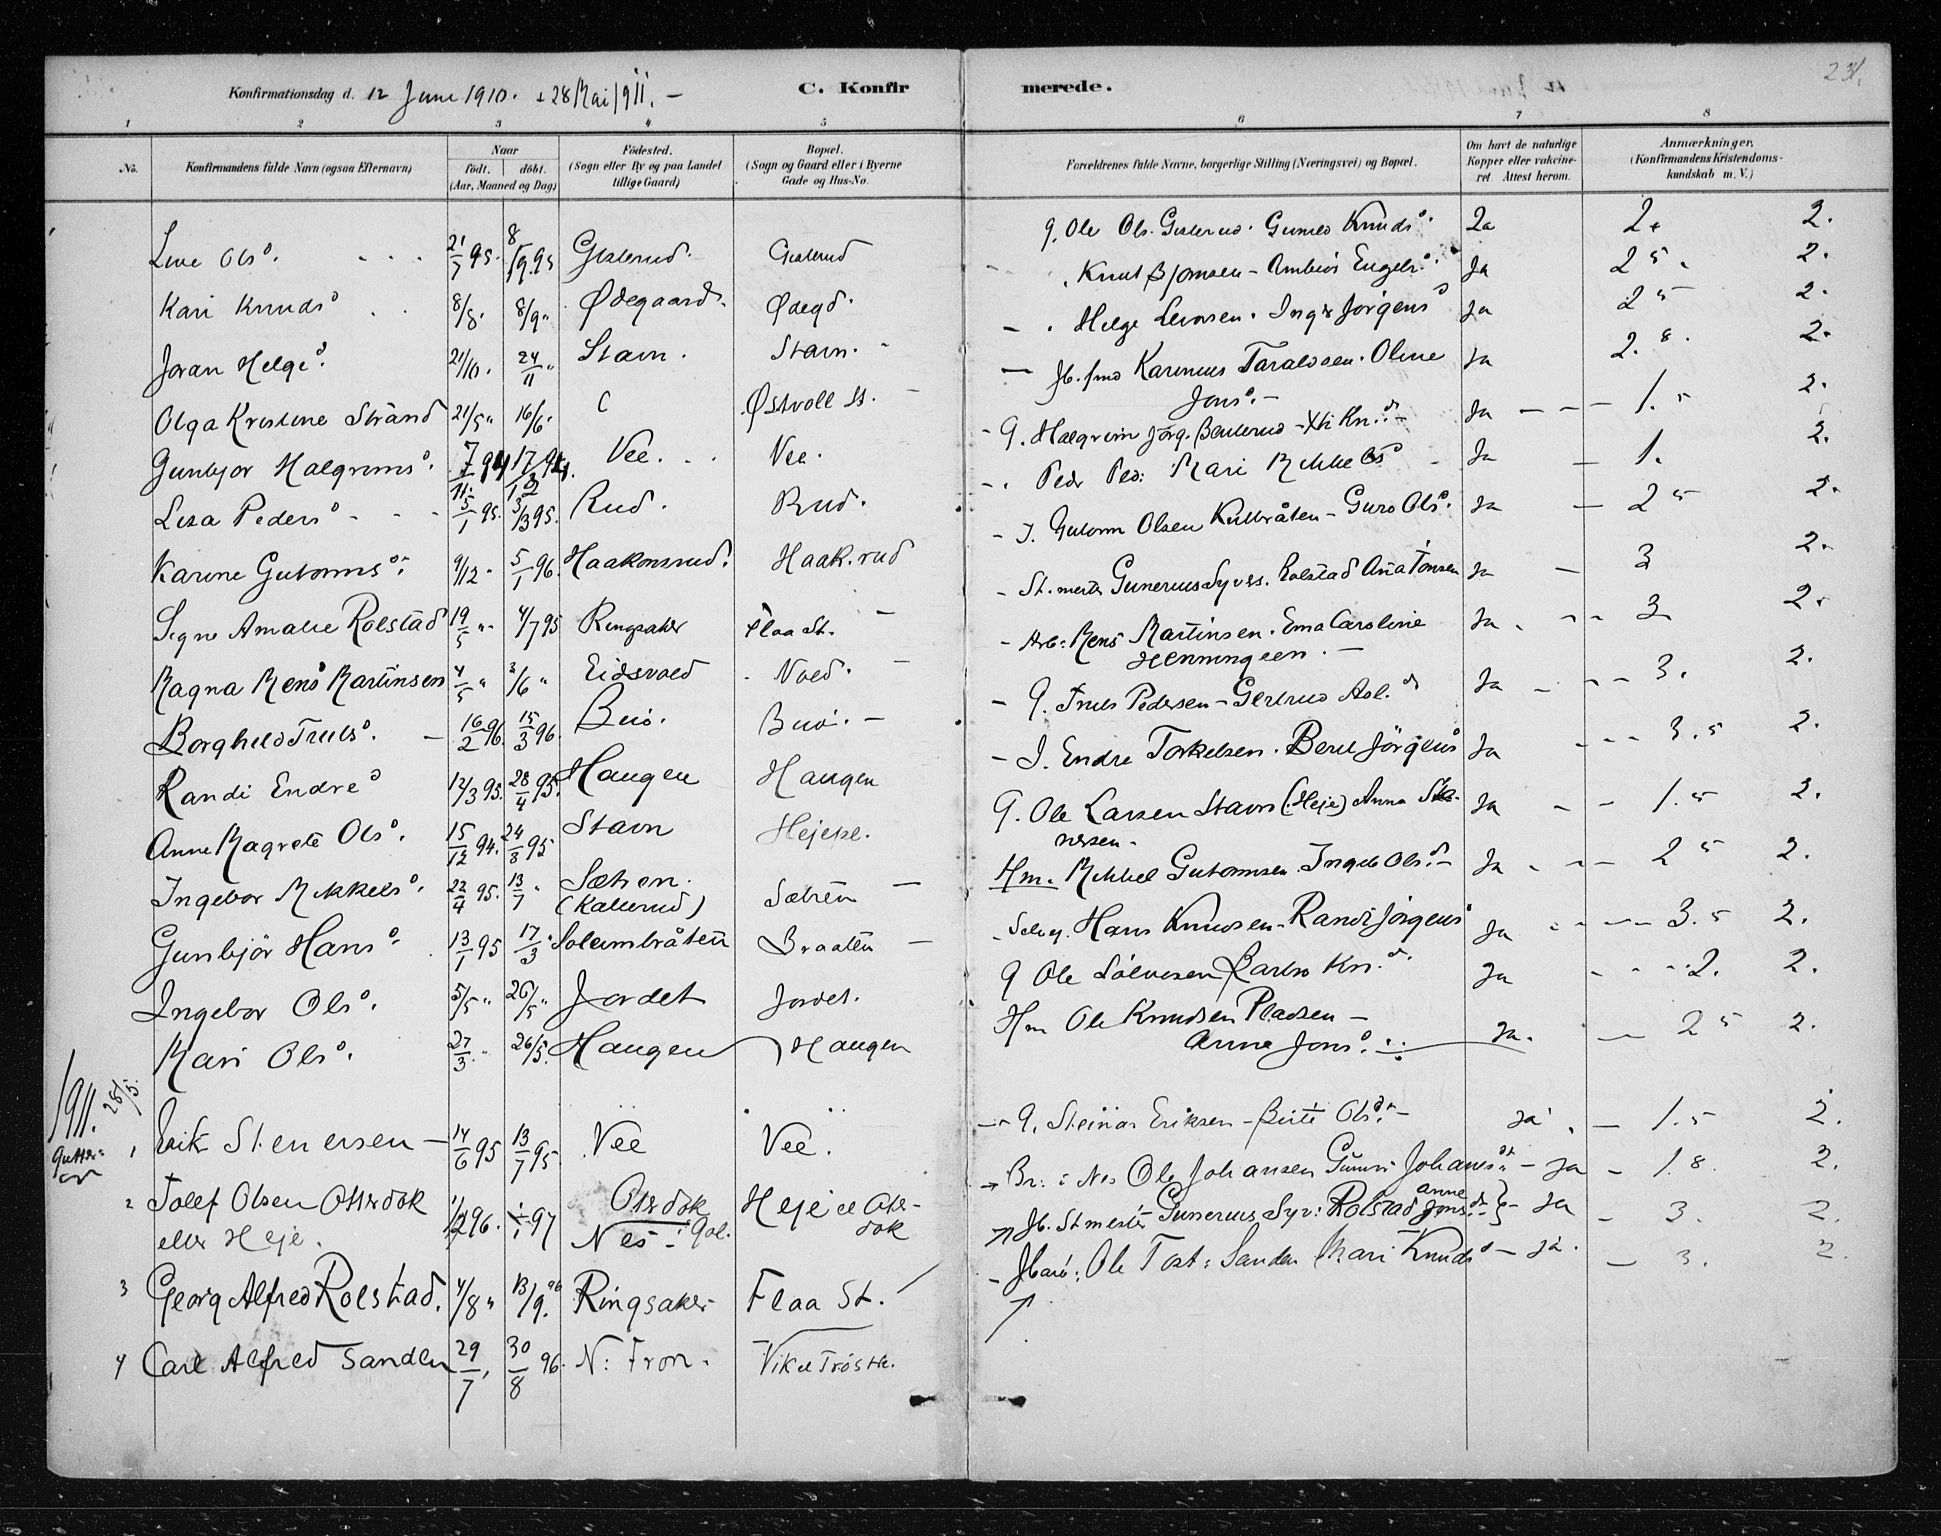 Konfirmationsdag d. 12 Juni 1910. + 28 Mai 1911. —
C. Konfirmerede.
231.
1 2 3 4 5 6 7 8
No.
Konfirmandens fulde Navn (ogsaa Efternavn)
Naar
født. døbt.
(Aar, Maaned og Dag)
Fødested.
(Sogn eller By og paa Landet
tillige Gaard)
Bopæl.
(Sogn og Gaard eller i Byerne
Gade og Hus-No.
Forældrenes fulde Navne, borgerlige Stilling (Næringsvei) og Bopæl.
Om havt de naturlige
Kopper eller vakcine-
ret. Attest herom.
Anmærkninger.
(Konfirmandens Kristendoms-
kundskab m. V.)
Live Olsd. 21/7 95. 8/9 95 Gislerud. Gislerud G. Ole Ols. Gislerud. Gunild Knudsd. Ja 2. 2.
Kari Knudsd 8/8. 8/9 " Ødegaard. Ødegd. Knut Bjørnsen - Ambiør Engebr.d. Ja 25. 2.
Joran Helged. 21/10. 24/11 " Stavn. Stavn. Helge Levorsen. Inger Jørgensd Ja 25 2.
Olga Kristine Strand 21/5 " 16/6. Østvoll St. Jb. fmd Karinius Taraldsen. Oline
Jonsd. Ja 2.8. 2.
Gunbjør Halgrimsd. 7/11 94 17/12 94. Vee. Vee. G. Halgrim Jörg. Beilerud - Kn.d. Ja 1.5 2.
Lisa Pedersd 5/1 95. 3/3 95. Rud. Rud. Peder Ped: Mari Mikkelsd Ja 1. 2.
Karine Gutormsd. 9/12. 5/1 96. Haakonsrud. Haak.rud J. Gutorm Olsen Kulbråten - Guro Olsd. Ja 25 2.
Signe Amalie Rolstad 19/5 " 4/7 95 Ringsaker Flaa St. St.mester Gunerius Syvers. Rolstad Jonsen Ja 3 2.
Magna Mens Martinsen 4/5 " 3/6 " Eidsvold Noed. Arb: Mens Martinsen. Ema Caroline
Henningsen. Ja 3 2.
Borghild Trulsd. 16/2 96. 15/3 96. Bero. Bero. G. Truls Pedersen - Gertrud Asl.d Ja 3. 2.
Randi Endred 12/3 95. 28/4 95. Haugen Haugen J. Endre Torkelsen. Berit Jørgensd Ja 3.5 2.
Anne Magrete Olsd. 15/12 94. 24/3 95 Stavn Hejeie. G. Ole Larsen Stavn (Heje) Anna
Ja 1.5 2.
Ingebor Mikkelsd. 22/4 95. 13/7 " Sætren.
(Kallerud) Sætren Hm. Mikkel Gutormsen. Ingeb Ols.d Ja 25 2.
Gunbjör Hansd. 13/1 95 17/3 " Solumbråten Braaten Selvej. Hans Knudsen. Randi Jörgensd Ja 3.5 2.
Ingebor Olsd. 5/5 " 26/5 " Jordet Jordet. G Ole Sölvesen Barbro Kn.d. Ja 2. 2.
Mari Olsd. 27/3 " 26/5. Haugen Haugen Hm Ole Knudsen Pladsen —
Anne Jonsd. Ja. 25 2.
1911. 28/5.
Gutter:
1 Erik Stenersen 14/6 95 13/7 95. Vee Vee. G. Steinar Eriksen - Birte Olsd. Ja 1.5 2.
2 Tolef Olsen Otterdok
eller Heje. 1/12 96. 1/1 97 Otterdok
Nes: Gol. Heje el Otter-
dok Br.: i Nes Ole Johansen Gunvor Johansd. Ja 1.8. 2.
3 Georg Alfred Rolstad. 4/8 " 13/9. 96 Ringsaker Flaa St. Jb. St mester Gunerius Syv: Rolstad Anne Jons.d. Ja 3. 2.
4 Carl Alfred Sanden 29/7 30/8 96. N: Fron. Vik el Tröste. Jbarb: Ole Tost: Sanden Mari Knudsd Ja. 3. 2.